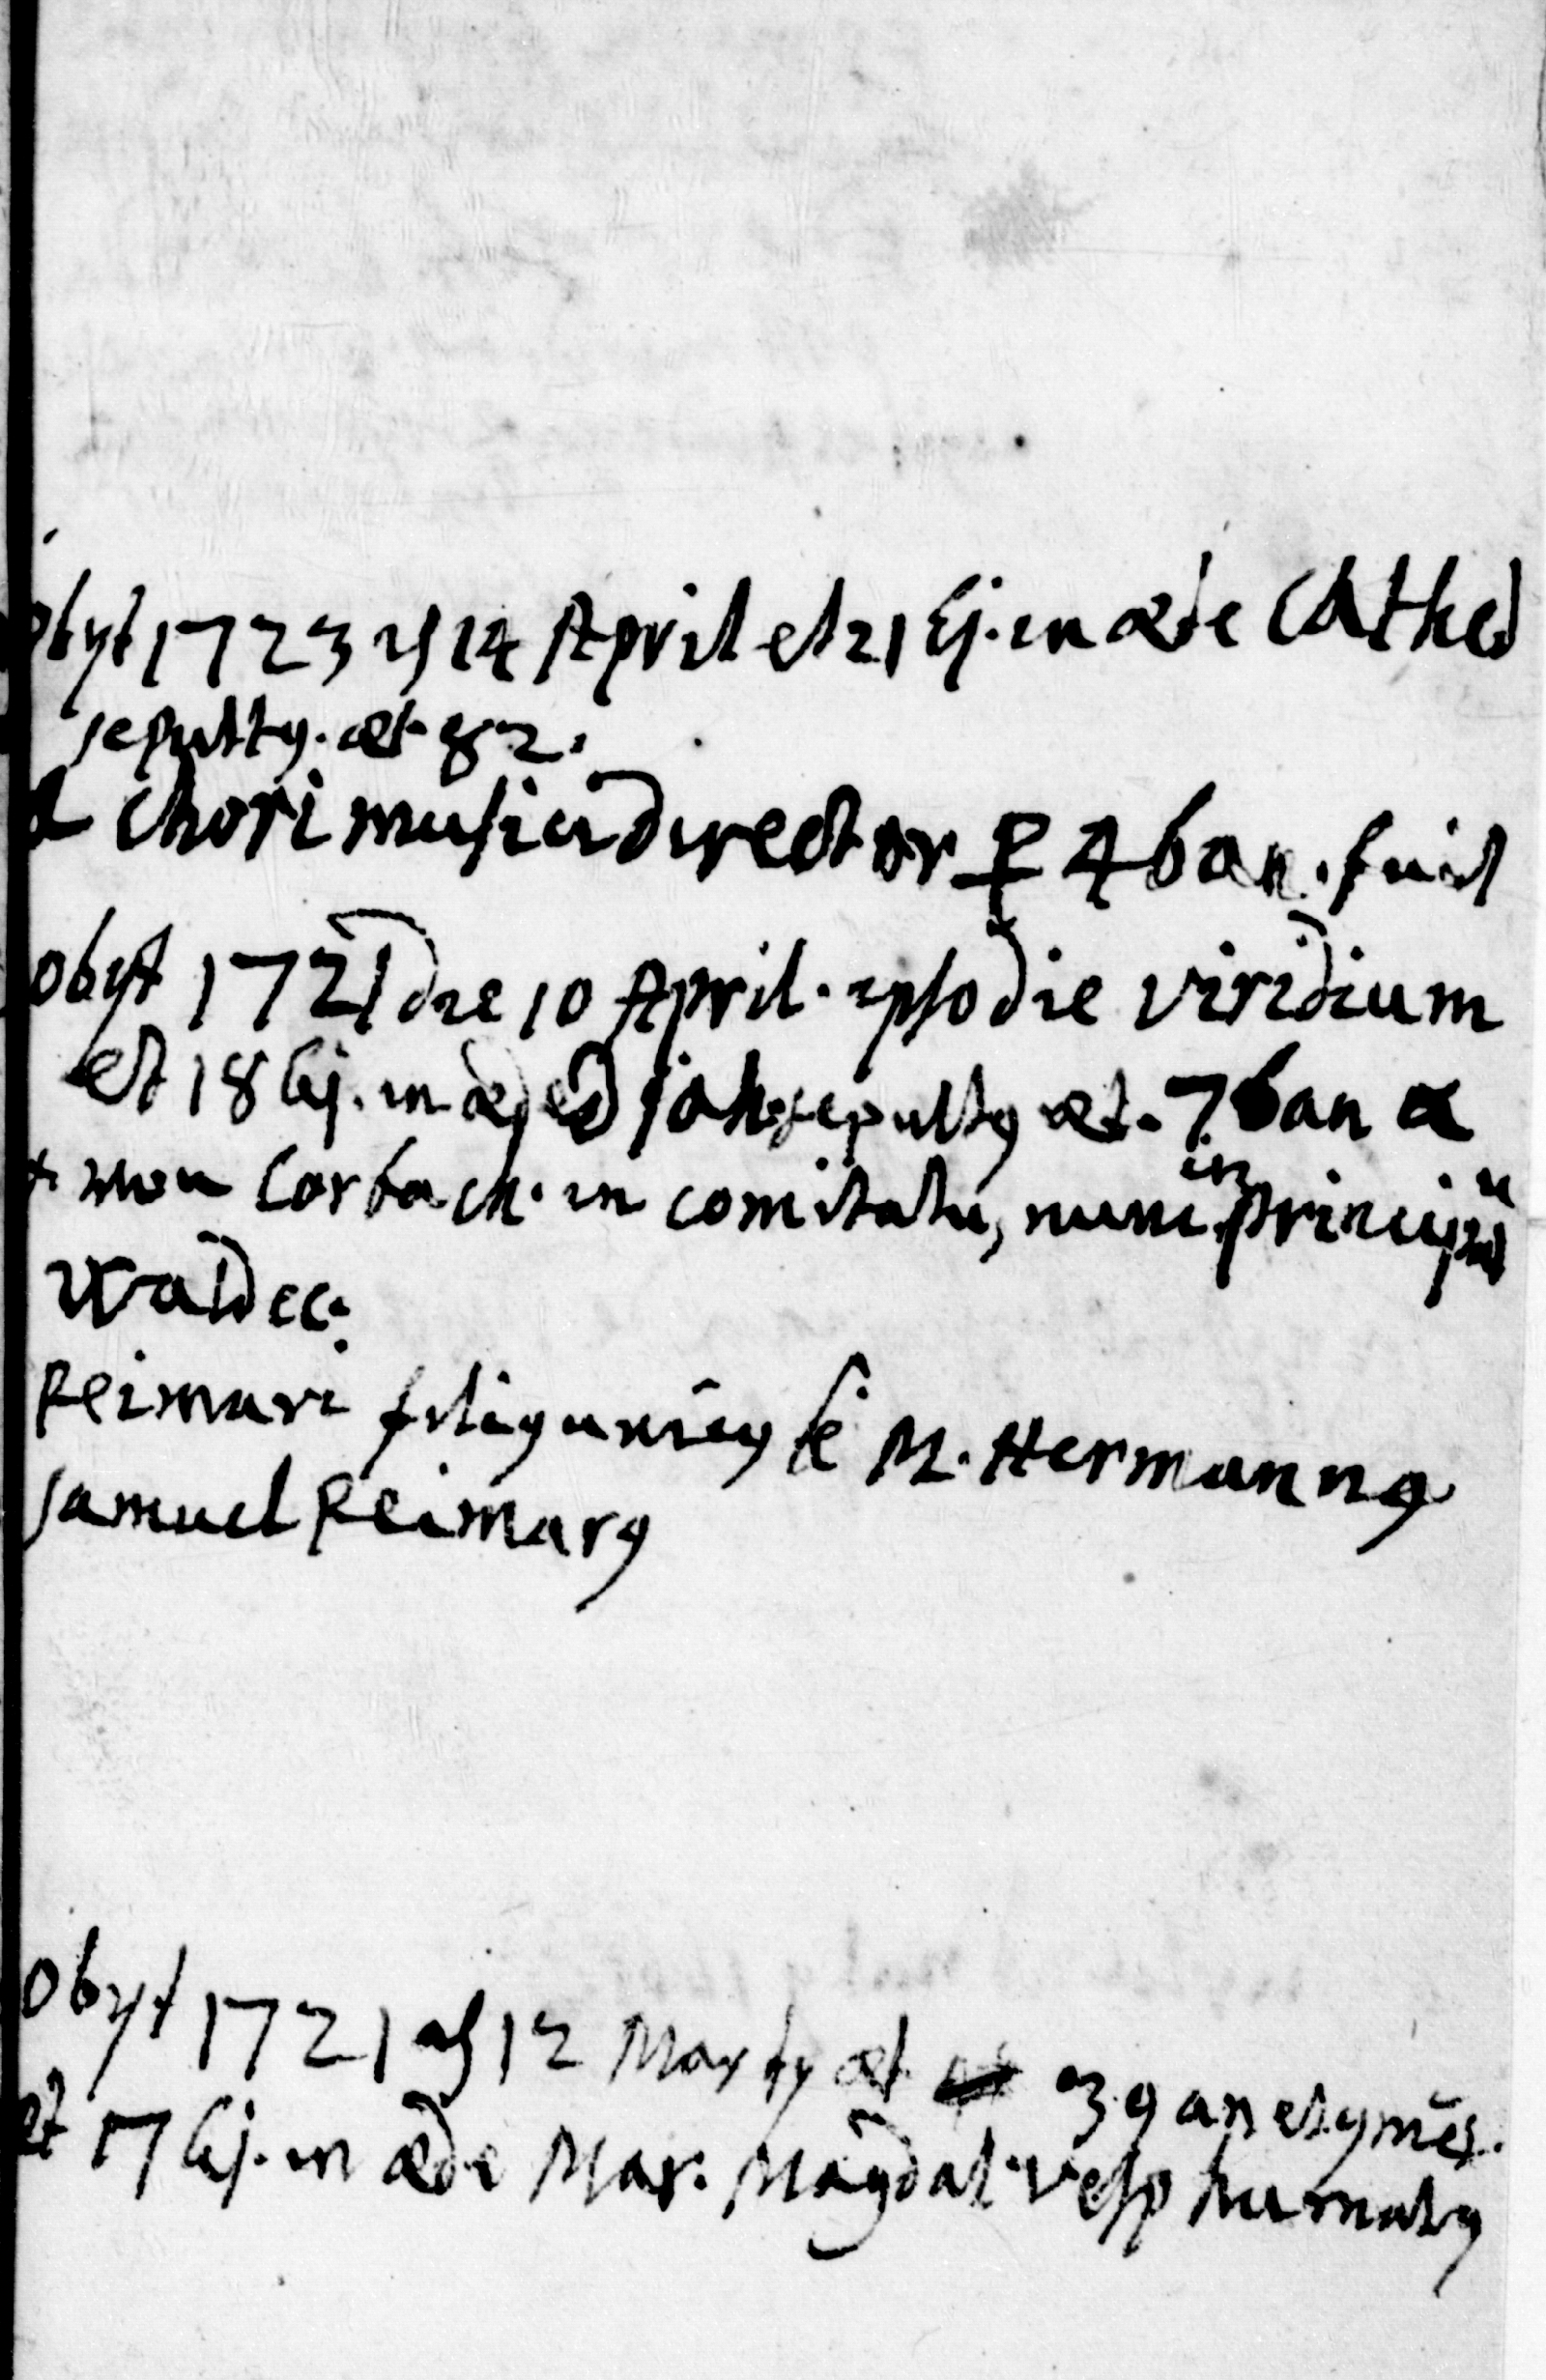 obyt 1723 14 April et 21 Ej. in æde Cathed
sepultꝯ. æt 82.
& Chori musici director ꝑ 46 an. fuit
obyt 1721 die 10 April. ipso die viridium
et 18 Ej. in æde Joh. sepultꝯ æt. 76 an
Corbach. in comitatu, nunc in principū
Waldec.
Reimari filiꝯ unicꝯ ē M. Hermannꝯ
Samuel Reimarꝯ
obyt 1721 12 Martij æt 39 an et 9 mēs.
et 17 Ej. in æde Mar. Magdal. vesp humatꝯ